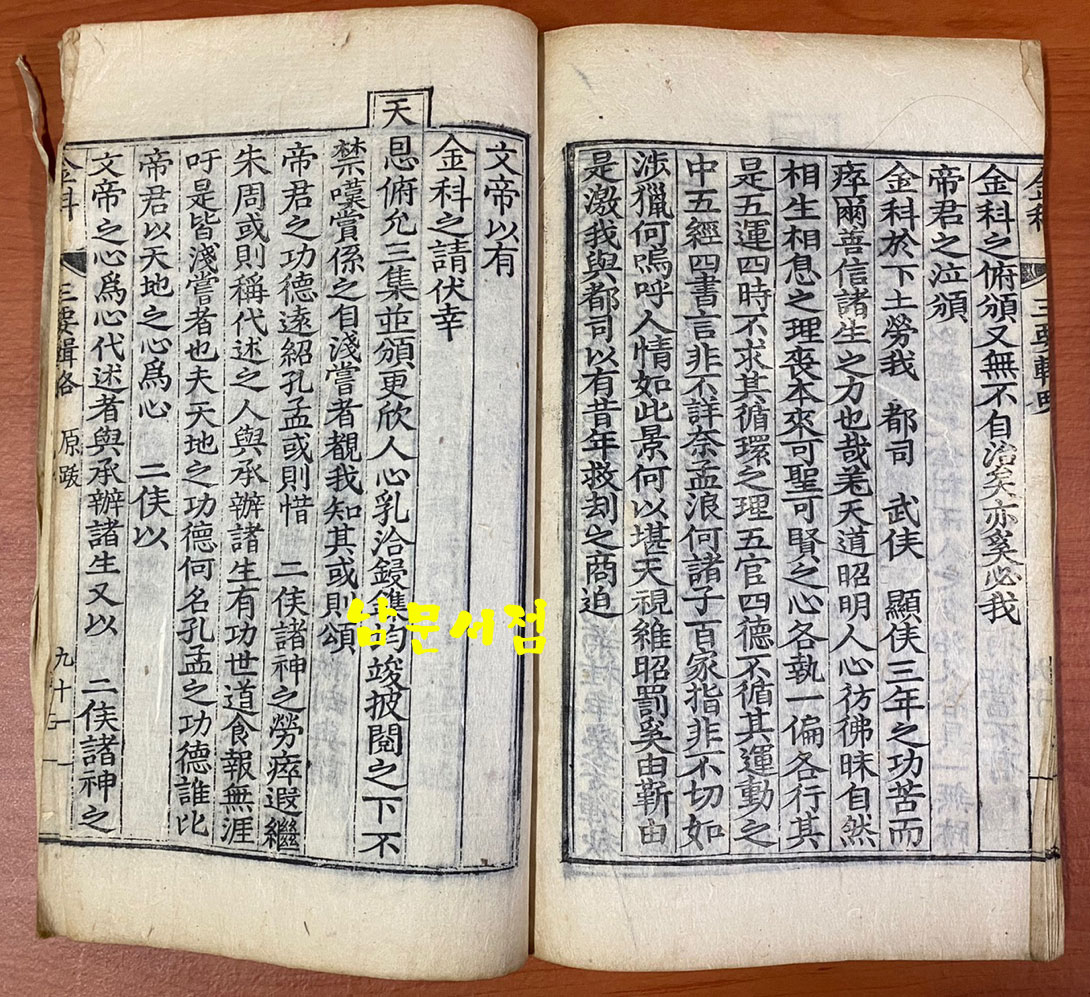 金科之俯頒又無不自治矣亦奚必我
帝君之泣頒
金科於下土勞我 都司 武侯 顯侯三年之功苦而
瘁爾善信諸生之力也哉羌天道昭明人心彷彿昧自然
相生相息之理喪本來可聖可賢之心各執一偏各行其
是五運四時不求其循環之理五官四德不循其運動之
中五經四書言非不詳奈孟浪何諸子百家指非不切如
涉獵何嗚呼人情如此景何以堪天視維昭罰奚由蘄由
是激我與都司以有昔年救刼之商迫
文帝以有
金科之請伏幸
天
恩俯允三集並頒更欣人心乳洽鋟鐫均竣披閱之下不
禁嘆賞係之自淺嘗者觀我知其或則頌
帝君之功德遠紹孔孟或則惜 二侯諸神之勞瘁遐繼
朱周或則稱代述之人與承辦諸生有功世道食報無涯
吁是皆淺嘗者也夫天地之功德何名孔孟之功德誰比
帝君以天地之心爲心 二侯以
文帝之心爲心代述者與承辦諸生又以 二侯諸神之
金科 三要輯略 原跋 九十
남문서점